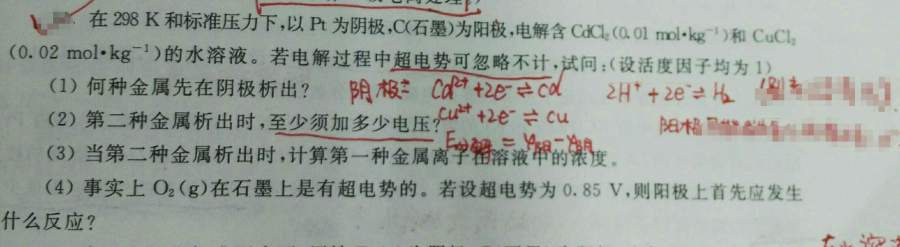 在298 K和标准压力下,以Pt为阴极,C(石墨)为阳极,电解含CdCl₂(0.01 mol·kg⁻¹)和CuCl₂
(0.02 mol·kg⁻¹)的水溶液。若电解过程中超电势可忽略不计,试问:(设活度因子均为1)
(1) 何种金属先在阴极析出?
阴极: Cd²⁺+2e⁻⇌Cd 2H⁺+2e⁻⇌H₂
(2) 第二种金属析出时,至少须加多少电压?
Cu²⁺+2e⁻⇌Cu
阳极
(3) 当第二种金属析出时,计算第一种金属离子在溶液中的浓度。
= φ阳-φ阴
(4) 事实上O₂(g)在石墨上是有超电势的。若设超电势为0.85 V,则阳极上首先应发生
什么反应?